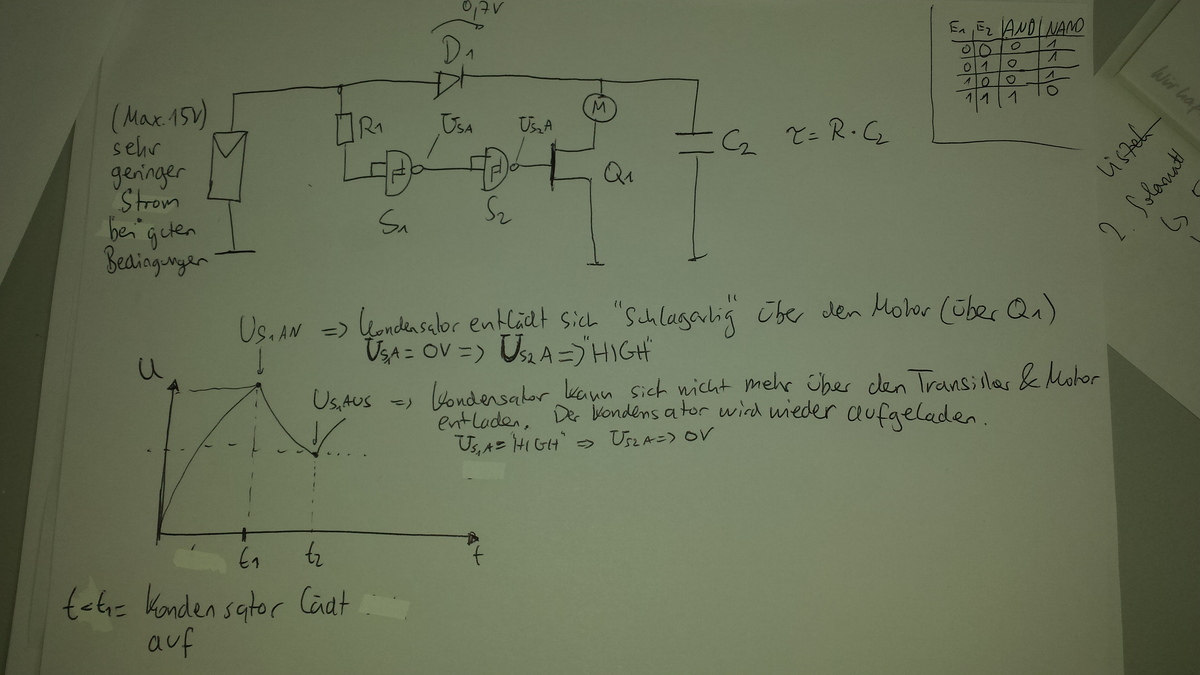 0,7V
D1
(Max. 15V)
sehr
geringer
Strom
bei guten
Bedingungen
R1
US1A
US2A
M
Q1
C2
τ = R · C2
S1
S2
E1 E2 AND NAND
0 0 0 1
0 1 0 1
1 0 0 1
1 1 1 0
2. Solarmatt
US1AN => Kondensator entlädt sich "Schlagartig" über den Motor (über Q1)
US1A = 0V => US2A => "HIGH"
U
US1AUS => Kondensator kann sich nicht mehr über den Transistor & Motor
entladen. Der Kondensator wird wieder aufgeladen.
US1A = "HIGH" => US2A => 0V
t1
t2
t
t<t1 = Kondensator lädt
auf